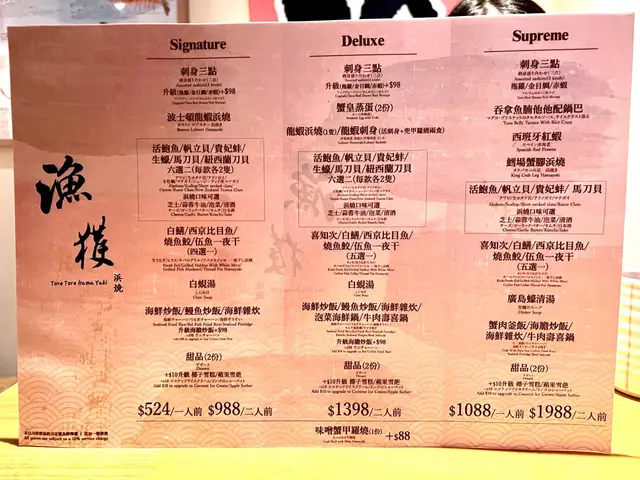 漁獲
浜燒
Toro Toro Hama Yaki
Signature
刺身三點
刺身盛り合わせ(三点)
Assorted sashimi (3 kinds)
升級(拖羅/金目鯛/赤蝦) +$98
波士頓龍蝦浜燒
Boston Lobster Hamayaki
活鮑魚/帆立貝/貴妃蚌/
生蠔/馬刀貝/紐西蘭刀貝
六選二(每款各2隻)
浜燒口味可選
芝士/蒜蓉牛油/泡菜/清酒
Cheese/Garlic Butter/Kimchi/Sake
白鱔/西京比目魚/
燒魚鮫/伍魚一夜干
(四選一)
白蜆湯
Clam Soup
海鮮炒飯/鰻魚炒飯/海鮮雜炊
升級海膽炒飯+$98
甜品(2份)
Dessert
+$10升級 椰子雪糕/蘋果雪葩
Add $10 to upgrade to Coconut Ice Cream/Apple Sorbet
$524/一人前 $988/二人前
Deluxe
刺身三點
刺身盛り合わせ(三点)
Assorted sashimi (3 kinds)
升級(拖羅/金目鯛/赤蝦) +$98
蟹皇蒸蛋(2份)
龍蝦浜燒(1隻)/龍蝦刺身(活刺身+兜甲羅燒雜食)
活鮑魚/帆立貝/貴妃蚌/
生蠔/馬刀貝/紐西蘭刀貝
六選二(每款各2隻)
浜燒口味可選
芝士/蒜蓉牛油/泡菜/清酒
Cheese/Garlic Butter/Kimchi/Sake
喜知次/白鱔/西京比目魚/
燒魚鮫/伍魚一夜干
(五選一)
白蜆湯
Clam Soup
海鮮炒飯/鰻魚炒飯/海鮮雜炊/
泡菜海鮮鍋/牛肉壽喜鍋
升級海膽炒飯+$98
甜品(2份)
Dessert
+$10升級 椰子雪糕/蘋果雪葩
Add $10 to upgrade to Coconut Ice Cream/Apple Sorbet
$1398/二人前
味噌蟹甲羅燒(1份) +$88
Supreme
刺身三點
刺身盛り合わせ(三点)
Assorted sashimi (3 kinds)
拖羅/金目鯛/赤蝦
吞拿魚腩他他配鍋巴
Tuna Belly Tartare with Rice Crust
西班牙紅蝦
Spanish Red Prawns
鱈場蟹腳浜燒
King Crab Leg Hamayaki
活鮑魚/帆立貝/貴妃蚌/馬刀貝
浜燒口味可選
芝士/蒜蓉牛油/泡菜/清酒
Cheese/Garlic Butter/Kimchi/Sake
喜知次/白鱔/西京比目魚/
燒魚鮫/伍魚一夜干
(五選一)
廣島蠔清湯
Oyster Soup
蟹肉釜飯/海膽炒飯/
海鮮雜炊/牛肉壽喜鍋
甜品(2份)
Dessert
+$10升級 椰子雪糕/蘋果雪葩
Add $10 to upgrade to Coconut Ice Cream/Apple Sorbet
$1088/一人前 $1988/二人前
All prices are subject to a 10% service charge